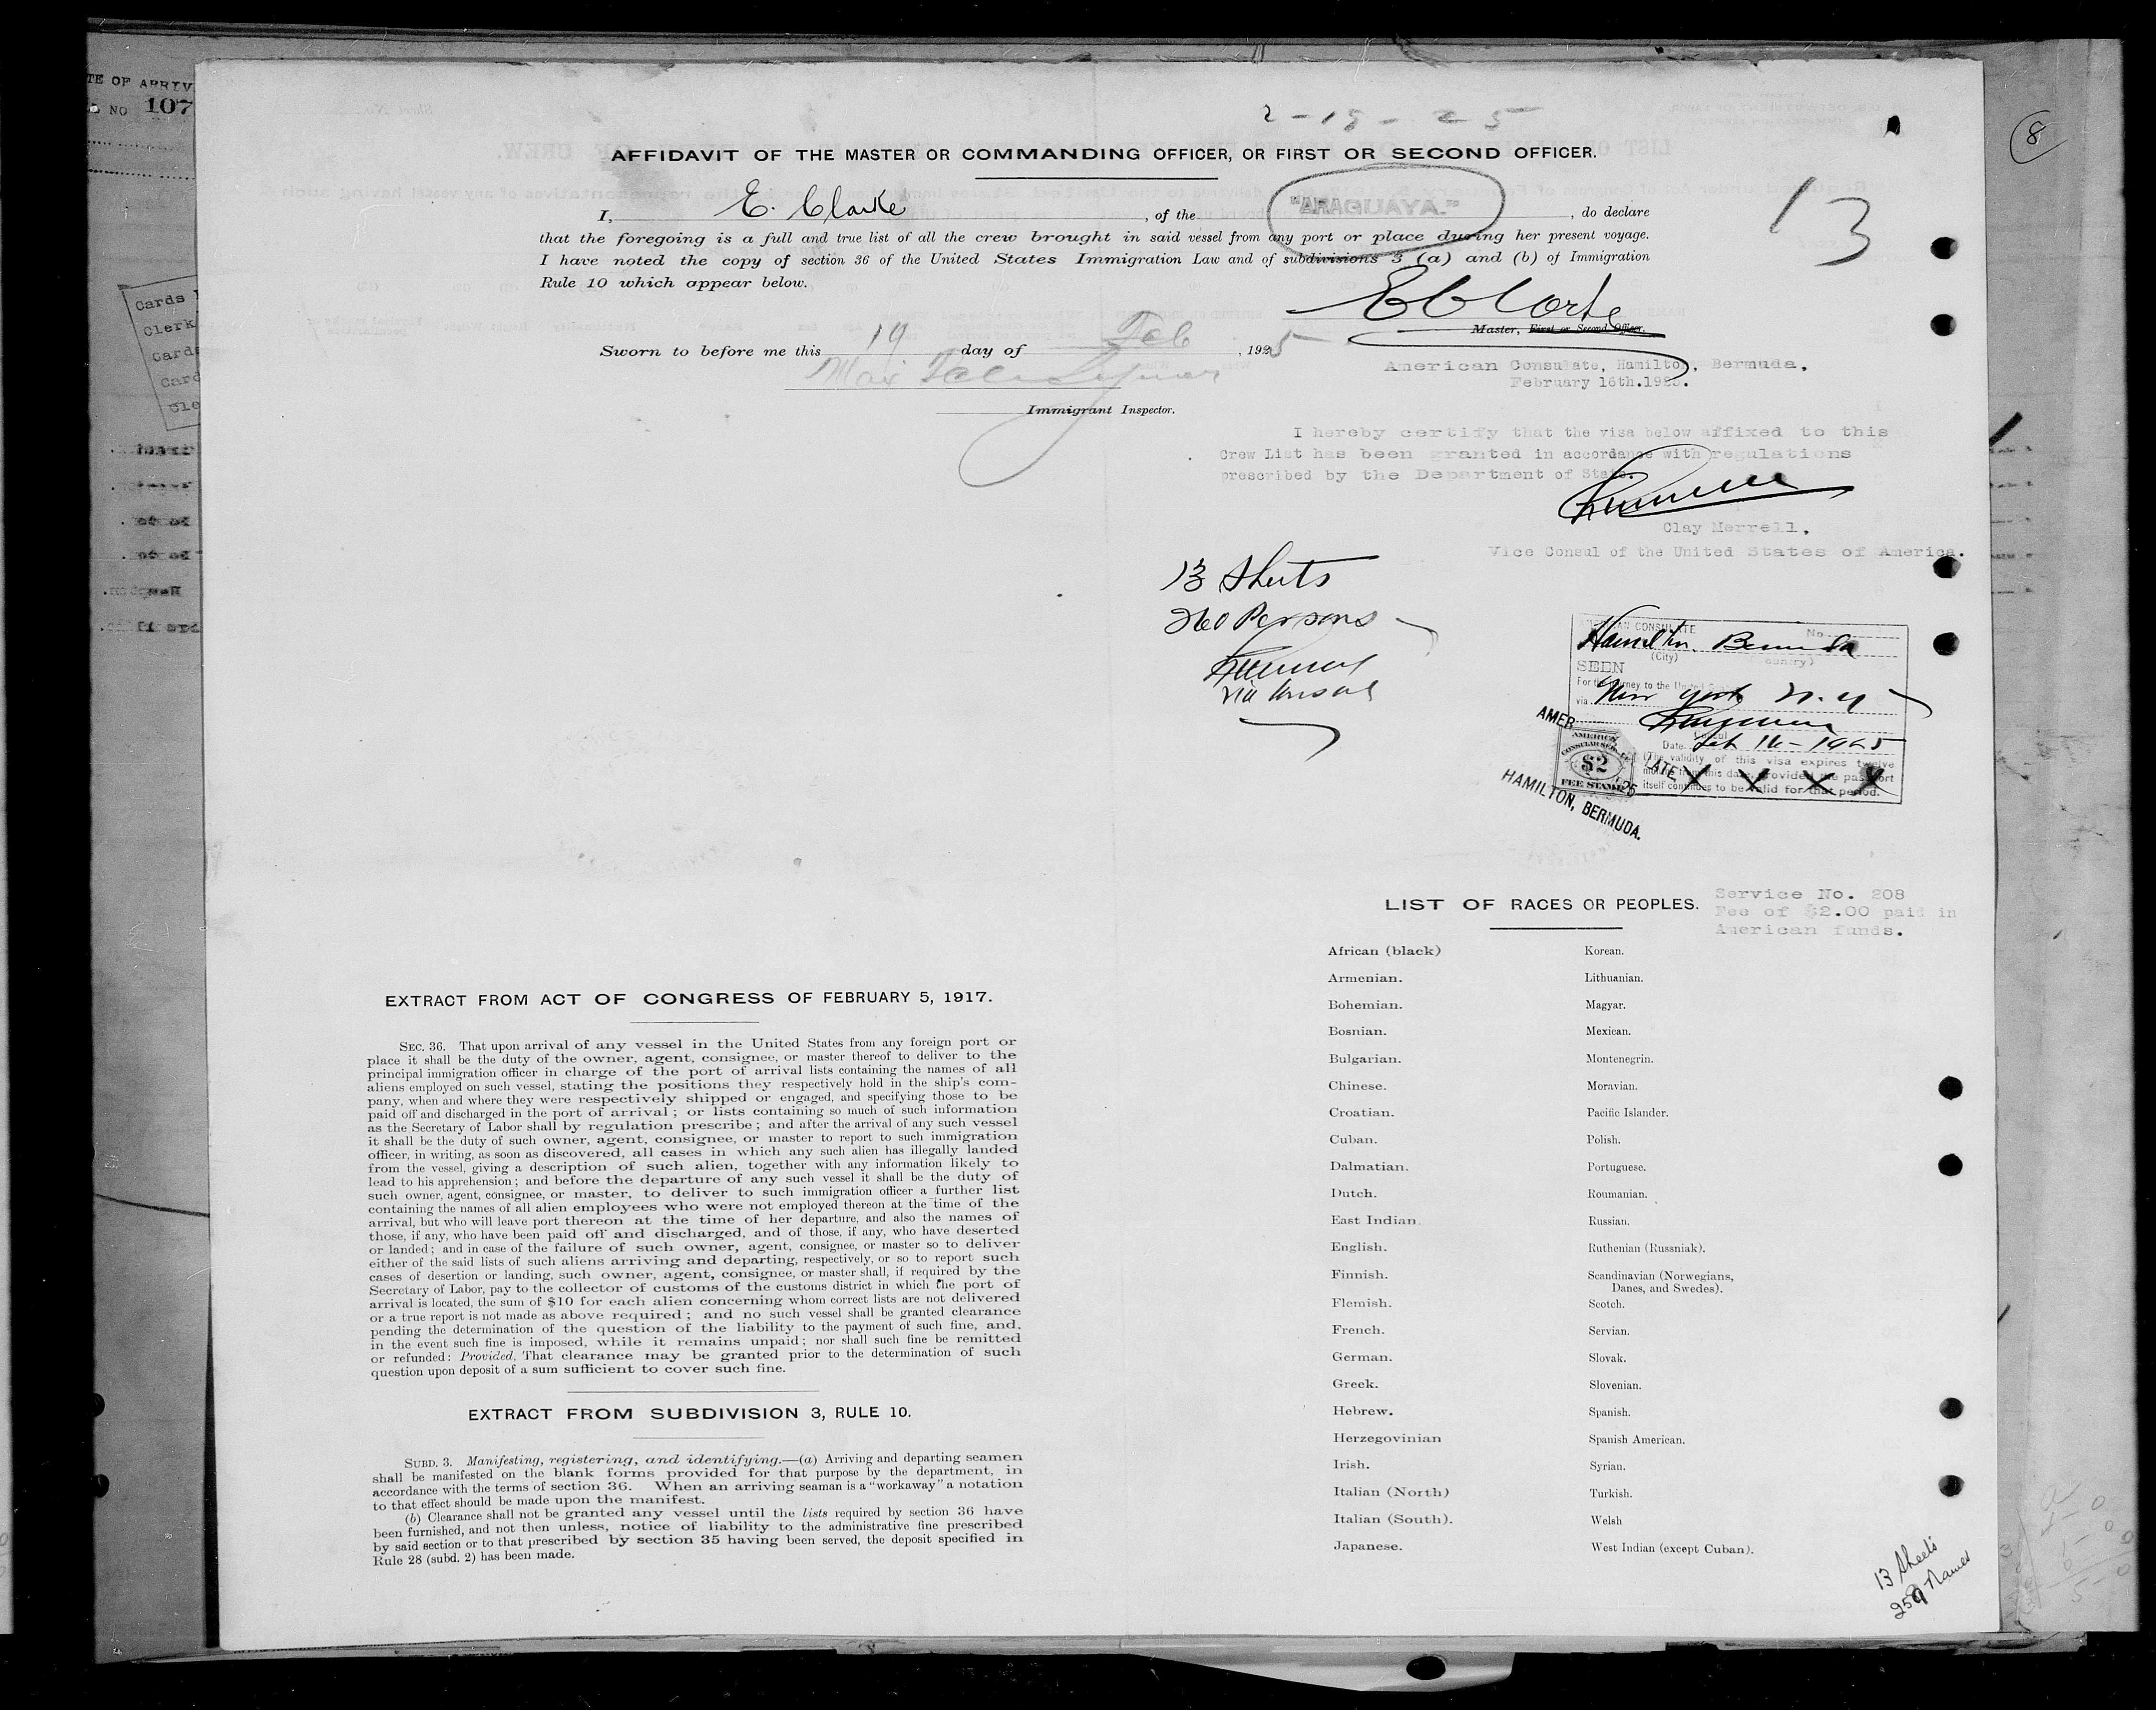 TE OF ARRIV
NO 107
Cards
Clerk
Cards
Card
Cle
8
2-18-25
AFFIDAVIT OF THE MASTER OR COMMANDING OFFICER, OR FIRST OR SECOND OFFICER.
13
I, E. Clarke, of the "ARAGUAYA.", do declare
that the foregoing is a full and true list of all the crew brought in said vessel from any port or place during her present voyage.
I have noted the copy of section 36 of the United States Immigration Law and of subdivisions 3 (a) and (b) of Immigration
Rule 10 which appear below.
E Clarke
Master, First or Second Officer.
Sworn to before me this 19 day of Feb, 1925
Immigrant Inspector.
American Consulate, Hamilton, Bermuda,
February 16th.1925.
I hereby certify that the visa below affixed to this
Crew List has been granted in accordance with regulations
prescribed by the Department of State.
Clay Merrell,
Vice Consul of the United States of America.
13 Sheets
260 Persons
Vice Consul
AMERICAN CONSULATE No.
Hamilton, Bermuda
(City) (Country)
SEEN
For the journey to the United States
via New York N.Y
Consul
Date Feb 16-1925
(The validity of this visa expires twelve
months from this date, provided the passport
itself continues to be valid for that period.
X X X X
AMERICAN
CONSULAR SERVICE
$2
FEE STAMP
AMER ATE
25
HAMILTON, BERMUDA.
LIST OF RACES OR PEOPLES.
Service No. 208
Fee of $2.00 paid in
American funds.
African (black)
Armenian.
Bohemian.
Bosnian.
Bulgarian.
Chinese.
Croatian.
Cuban.
Dalmatian.
Dutch.
East Indian.
English.
Finnish.
Flemish.
French.
German.
Greek.
Hebrew.
Herzegovinian
Irish.
Italian (North)
Italian (South).
Japanese.
Korean.
Lithuanian.
Magyar.
Mexican.
Montenegrin.
Moravian.
Pacific Islander.
Polish.
Portuguese.
Roumanian.
Russian.
Ruthenian (Russniak).
Scandinavian (Norwegians,
Danes, and Swedes).
Scotch.
Servian.
Slovak.
Slovenian.
Spanish.
Spanish American.
Syrian.
Turkish.
Welsh
West Indian (except Cuban).
EXTRACT FROM ACT OF CONGRESS OF FEBRUARY 5, 1917.
SEC. 36. That upon arrival of any vessel in the United States from any foreign port or
place it shall be the duty of the owner, agent, consignee, or master thereof to deliver to the
principal immigration officer in charge of the port of arrival lists containing the names of all
aliens employed on such vessel, stating the positions they respectively hold in the ship's com-
pany, when and where they were respectively shipped or engaged, and specifying those to be
paid off and discharged in the port of arrival; or lists containing so much of such information
as the Secretary of Labor shall by regulation prescribe; and after the arrival of any such vessel
it shall be the duty of such owner, agent, consignee, or master to report to such immigration
officer, in writing, as soon as discovered, all cases in which any such alien has illegally landed
from the vessel, giving a description of such alien, together with any information likely to
lead to his apprehension; and before the departure of any such vessel it shall be the duty of
such owner, agent, consignee, or master, to deliver to such immigration officer a further list
containing the names of all alien employees who were not employed thereon at the time of the
arrival, but who will leave port thereon at the time of her departure, and also the names of
those, if any, who have been paid off and discharged, and of those, if any, who have deserted
or landed; and in case of the failure of such owner, agent, consignee, or master so to deliver
either of the said lists of such aliens arriving and departing, respectively, or so to report such
cases of desertion or landing, such owner, agent, consignee, or master shall, if required by the
Secretary of Labor, pay to the collector of customs of the customs district in which the port of
arrival is located, the sum of $10 for each alien concerning whom correct lists are not delivered
or a true report is not made as above required; and no such vessel shall be granted clearance
pending the determination of the question of the liability to the payment of such fine, and,
in the event such fine is imposed, while it remains unpaid; nor shall such fine be remitted
or refunded: Provided, That clearance may be granted prior to the determination of such
question upon deposit of a sum sufficient to cover such fine.
EXTRACT FROM SUBDIVISION 3, RULE 10.
SUBD. 3. Manifesting, registering, and identifying.—(a) Arriving and departing seamen
shall be manifested on the blank forms provided for that purpose by the department, in
accordance with the terms of section 36. When an arriving seaman is a "workaway" a notation
to that effect should be made upon the manifest.
(b) Clearance shall not be granted any vessel until the lists required by section 36 have
been furnished, and not then unless, notice of liability to the administrative fine prescribed
by said section or to that prescribed by section 35 having been served, the deposit specified in
Rule 28 (subd. 2) has been made.
13 Sheets
259 Names